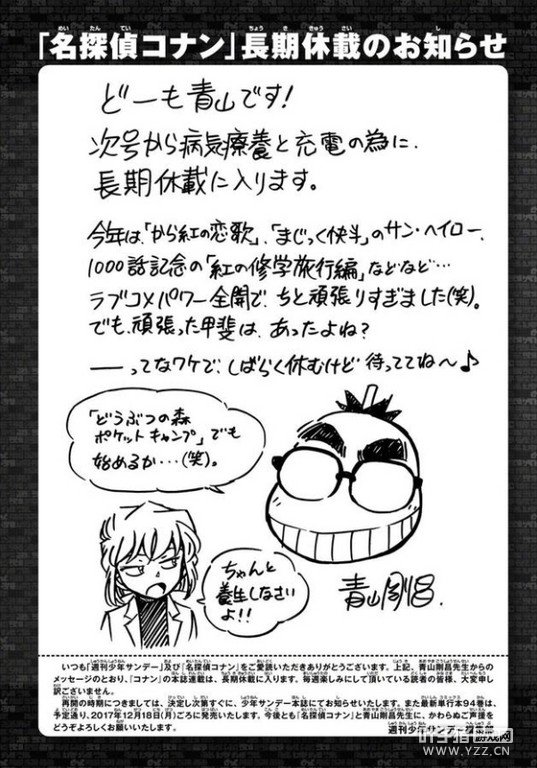 「名探偵コナン」長期休載のお知らせ
どーも青山です！
次号から病気療養と充電の為に、
長期休載に入ります。
今年は、「から紅の恋歌」、「まじっく快斗」のサン・ヘイロー、
1000話記念の「紅の修学旅行編」などなど…
ラブコメパワー全開で、ちと頑張りすぎました(笑)。
でも、頑張った甲斐は、あったよね？
——ってなワケで、しばらく休むけど 待っててね〜♪
「どうぶつの森
ポケットキャンプ」でも
始めるか…(笑)。
ちゃんと
養生しなさい
よ!!
青山剛昌
いつも「週刊少年サンデー」及び「名探偵コナン」をご愛読いただきありがとうございます。上記、青山剛昌先生からの
メッセージのとおり、「コナン」の本誌連載して、長期休載に入ります。毎週楽しみにして頂いている読者の皆様、大変申し
訳ございません。
再開の時期につきましては、決定し次第すぐに、少年サンデー本誌にてお知らせいたします。また最新単行本94巻は、
予定通り、2017年12月18日(月)ごろに発売いたします。今後とも「名探偵コナン」と青山剛昌先生に、かわらぬご声援を
どうぞよろしくお願いいたします。
週刊少年サンデー
www.YZZ.CN